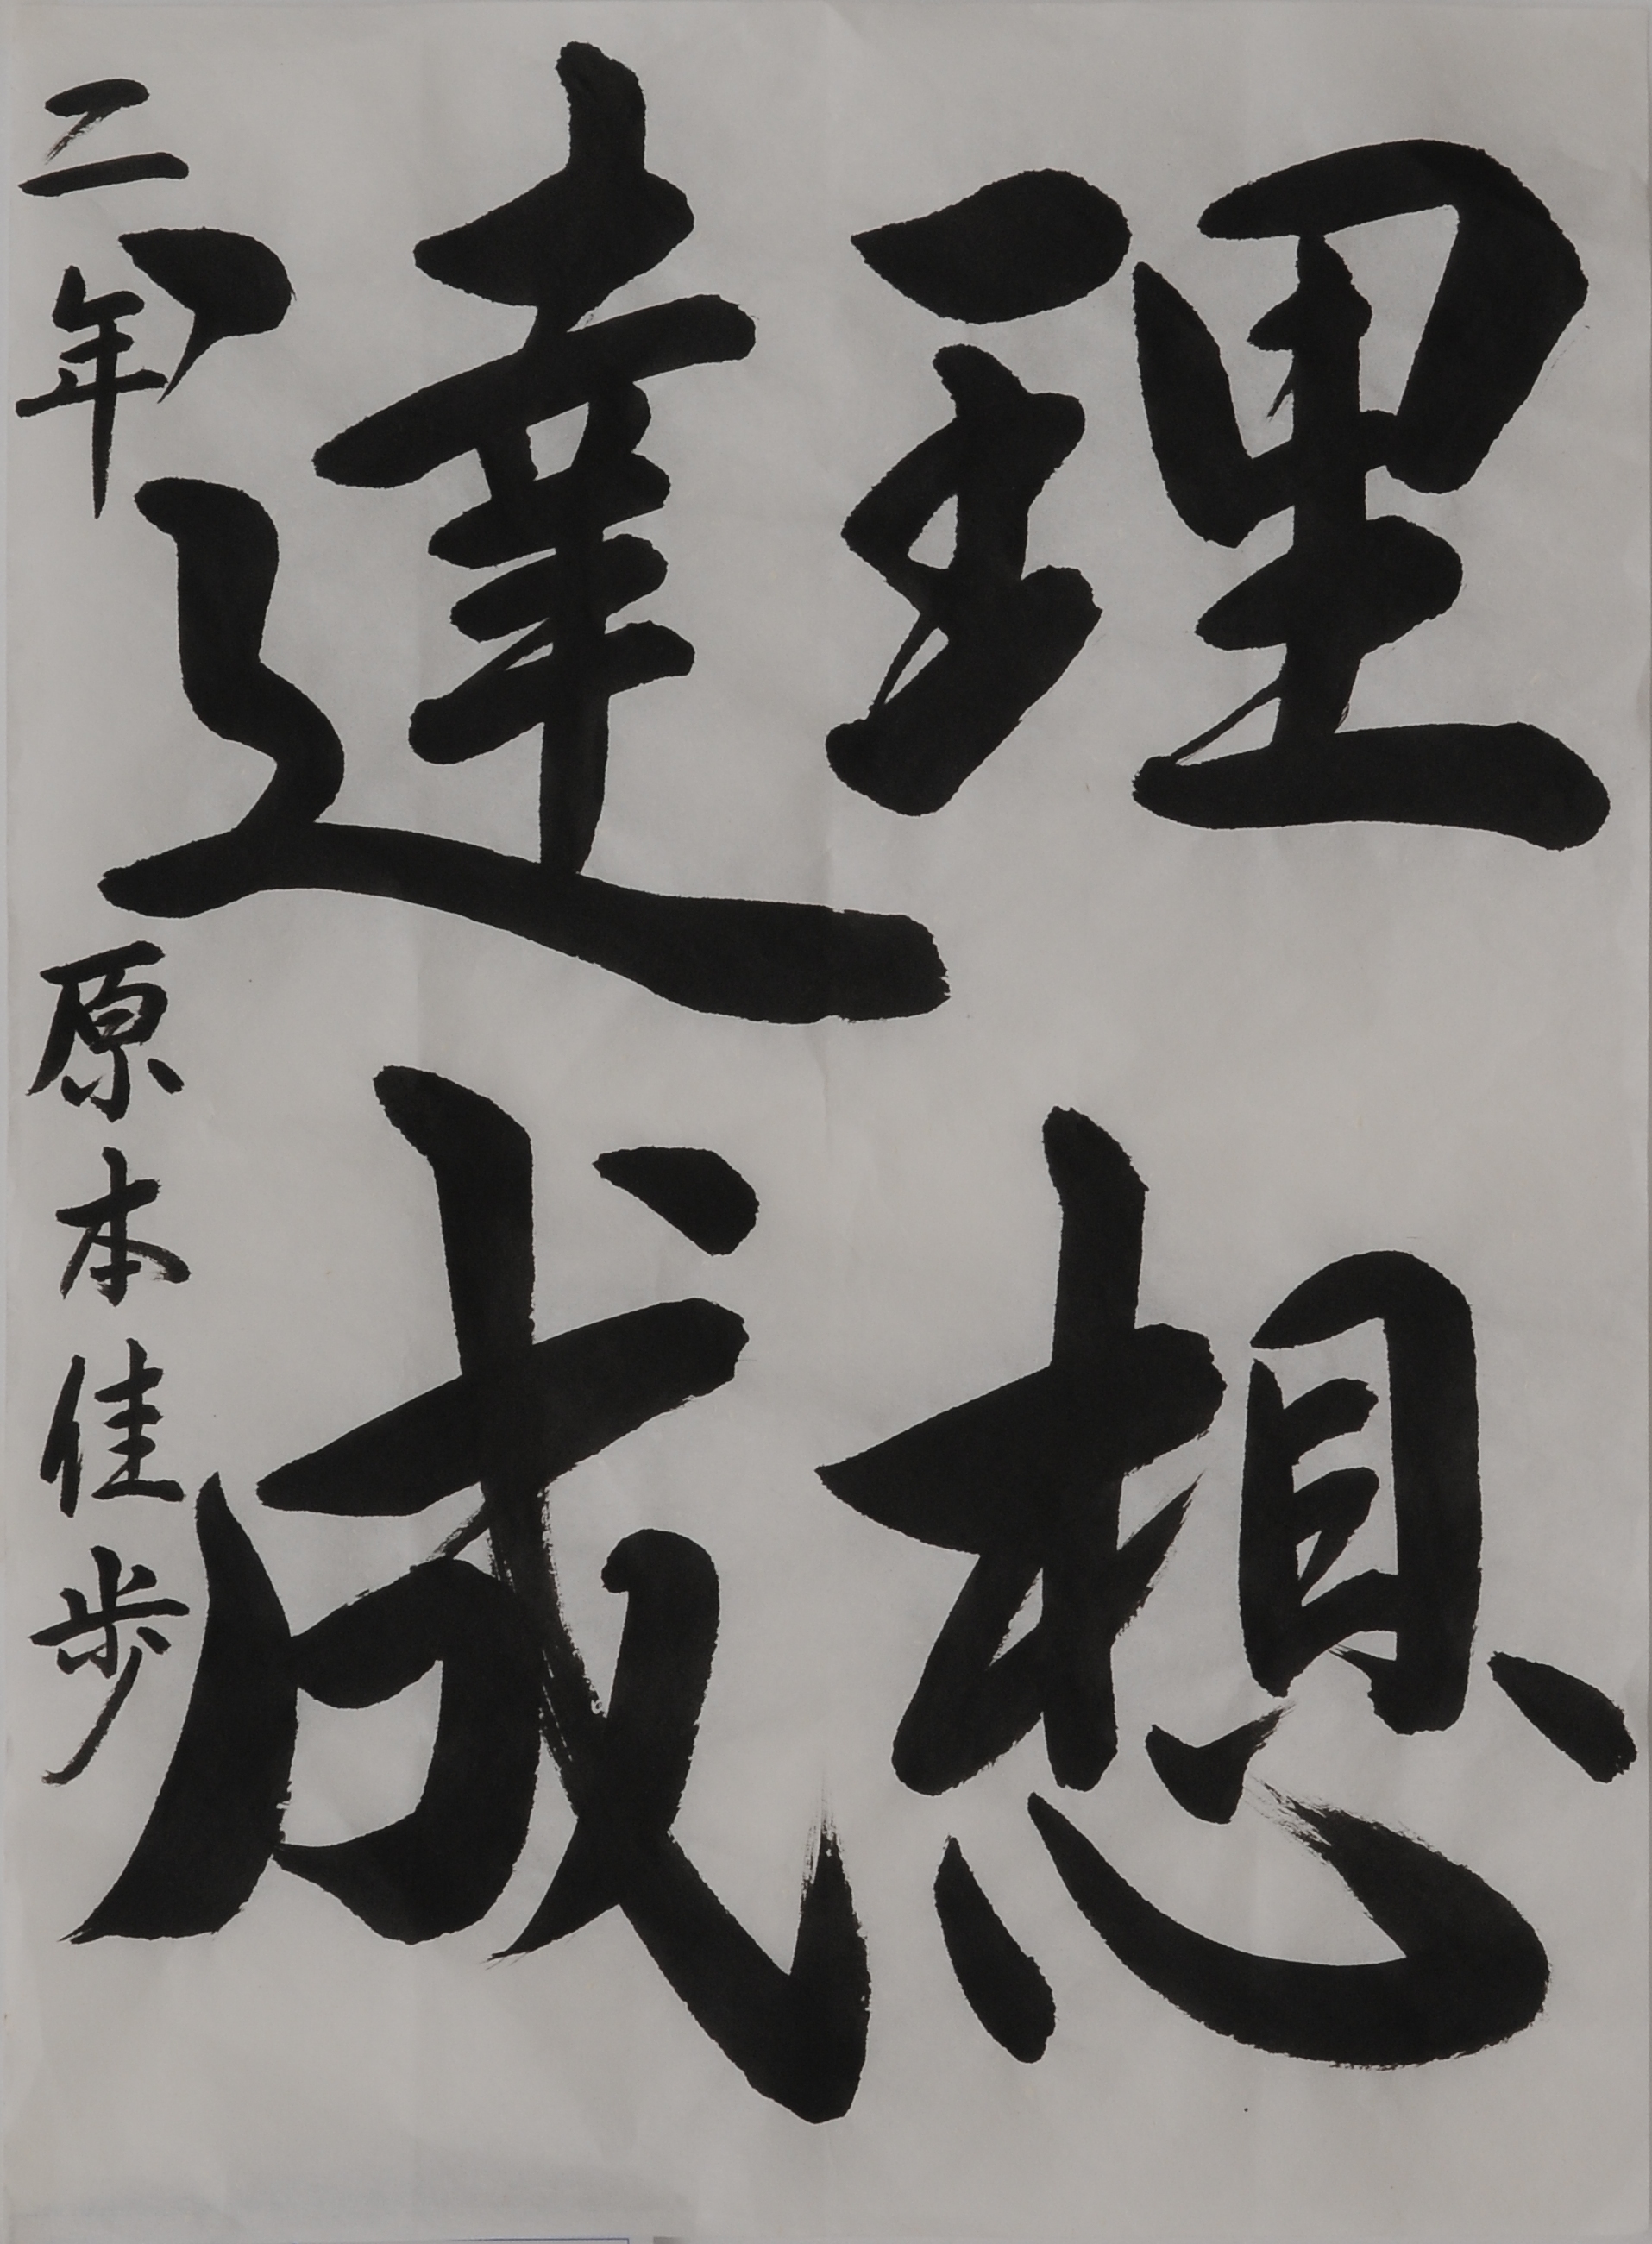 理想
達成
二年 原本佳歩